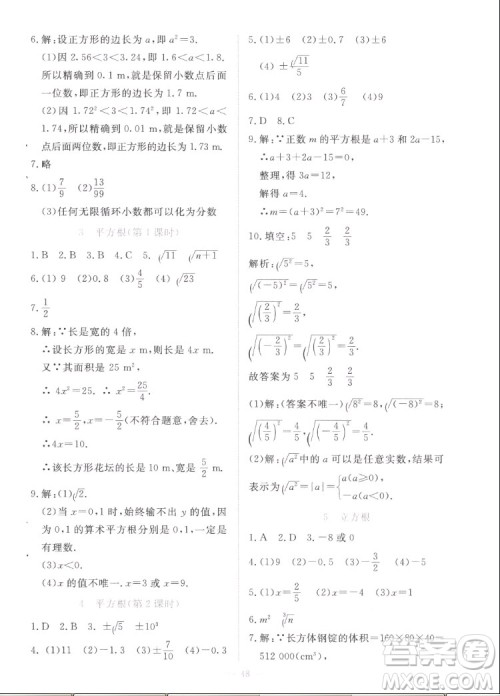 6.解:设正方形的边长为a,则a²=3.
(1)因 2.56<3<3.24,即 1.6<a<1.7,精确到 0.1 m,就是保留小数点后面一位数,即正方形的边长为 1.7 m.
(2)因 1.72²<3<1.74²,即 1.72<a<1.74,精确到 0.01 m,就是保留小数点后面两位数,即正方形的边长为 1.73 m.
7.略
8.(1)7/9 (2)13/99
(3)任何无限循环小数都可以化为分数
平方根(第1课时)
1.B 2.B 3.A 4.C 5.√11 √(n+1)
6.(1)9 (2)0.8 (3)4/5 (4)√23
7.1/2
8.解:∵长是宽的 4 倍,
∴设长方形的宽是 x m,则长是 4x m.
又∵面积是 25 m²,
∴4x²=25,x²=25/4.
∴x=5/2 或 x=-5/2(不符合题意,舍去).
∴4x=10.
∴该长方形花坛的长是 10 m,宽是 5/2 m.
9.解:(1)√2.
(2)当 x=0,1 时,始终输不出 y 值,因为 0,1 的算术平方根分别是 0,1,一定是有理数.
(3)x<0.
(4)x 的值不唯一.
平方根(第2课时)
1.A 2.B 3.±√5 4.±10³
5.(1)±0.1 (2)±9/4 (3)±9/5
6.(1)1 (2)4 (3)6/7
7.D 8.C
9.解:∵正数 m 的平方根是 a+3 和 2a-15,
∴a+3+2a-15=0.
整理,得 3a=12,
解得 a=4.
∴m=(a+3)²=7²=49.
10.填空:5 5 2/3 2/3
解析:√5²=5,
√(-5)²=5,
√(2/3)²=2/3,
√(-2/3)²=2/3.
故答案为 5 5 2/3 2/3
(1)解:(答案不唯一)√8²=8,√(-8)²=8,
√(4/5)²=4/5,√(-4/5)²=4/5.
(2)解:式子中的 a 可以取任意实数,结果可
表示为√a²=|a|={a(a≥0), -a(a<0).
5 立方根
1.A 2.D 3.-8 0
7.解:∵长方体钢锭的体积=160×80×40=
512 000(cm³),